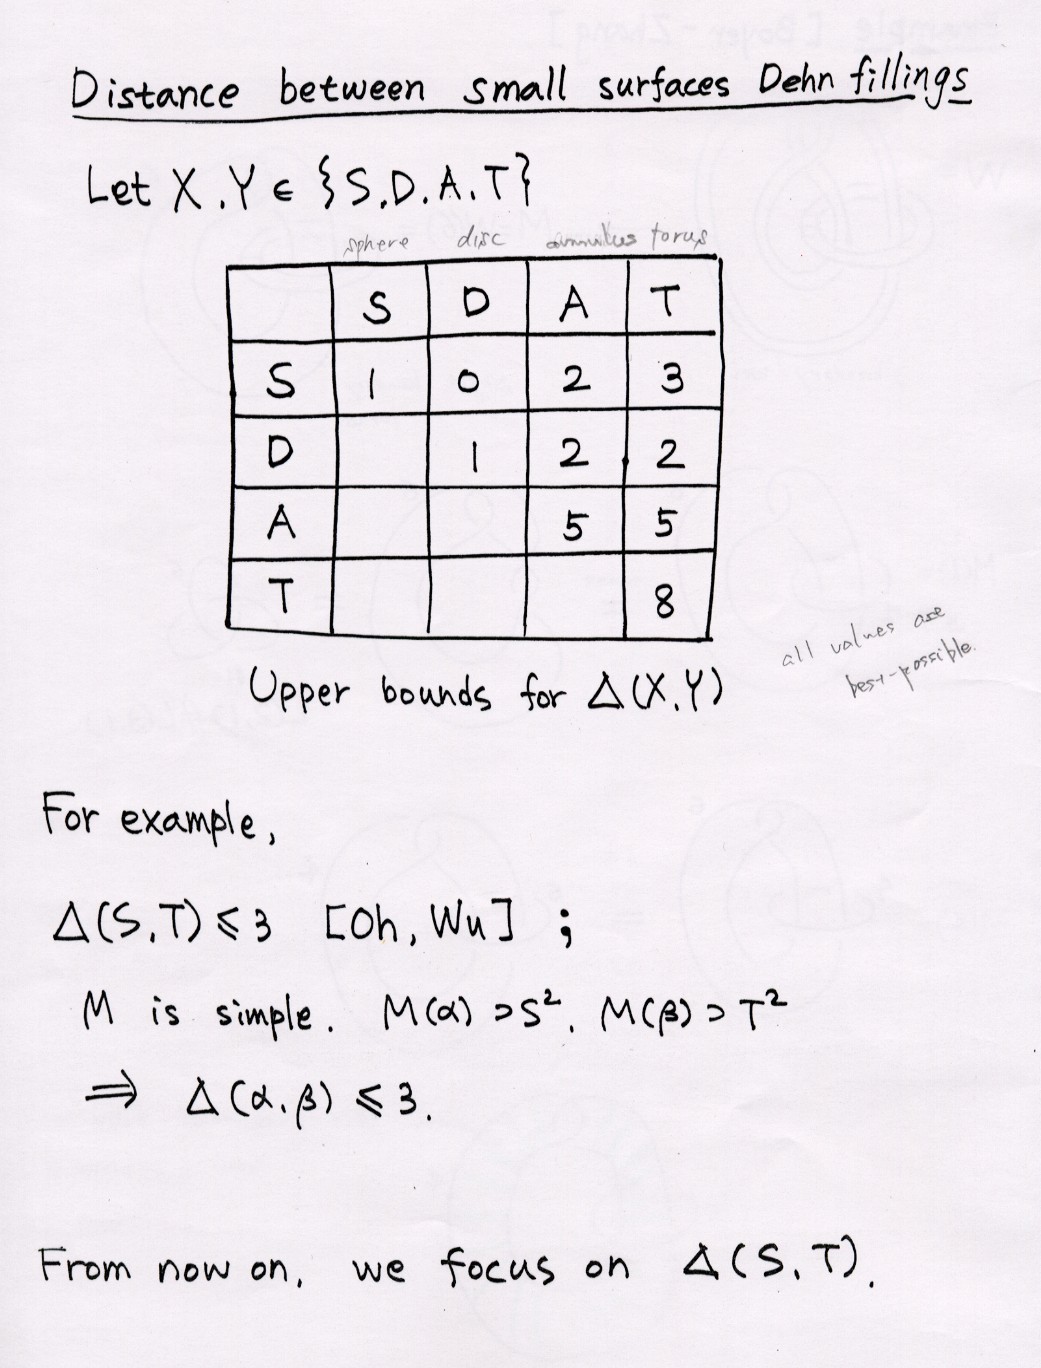 Distance between small surfaces Dehn fillings
Let X, Y ∈ {S, D, A, T}
sphere disc annulus torus
S D A T
S 1 0 2 3
D 1 2 2
A 5 5
T 8
all values are
best-possible.
Upper bounds for Δ(X, Y)
For example,
Δ(S, T) ⩽ 3 [Oh, Wu] ;
M is simple. M(α) ⊃ S², M(β) ⊃ T²
⇒ Δ(α, β) ⩽ 3.
From now on, we focus on Δ(S, T).